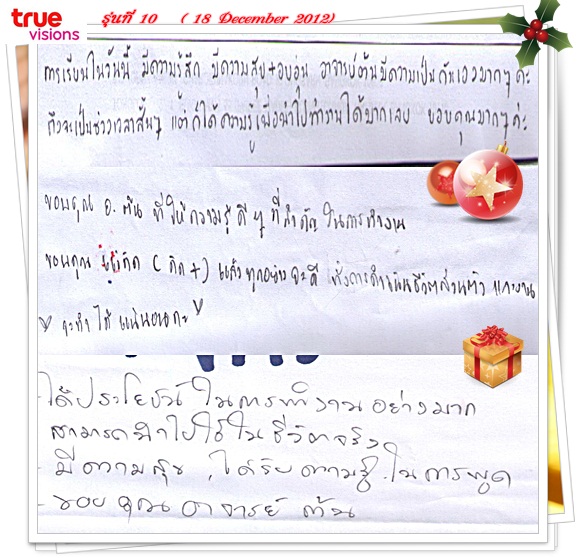 true
visions
รุ่นที่ 10 ( 18 December 2012)
การเรียนในวันนี้ มีความรู้สึก มีความสุข+อบอุ่น อาจารย์ต้นมีความเป็นกันเองมากๆค่ะ
ถึงจะเป็นช่วงเวลาสั้นๆ แต่ก็ได้ความรู้เพื่อนำไปทำงานได้มากเลย ขอบคุณมากๆค่ะ
ขอบคุณ อ. ต้น ที่ให้ความรู้ ดี ๆ ที่สำคัญ ในการทำงาน
ขอบคุณ ข้อคิด ( คิด +) แล้วทุกอย่าง จะดี ทั้งการดำเนินชีวิตส่วนตัว และงาน
จะทำ ได้ แน่นอนค่ะ
- ได้ประโยชน์ ในการทำงาน อย่างมาก
สามารถนำไปใช้ใน ชีวิตจริง
- มี ความ สุข , ได้รับ ความรู้ ในการพูด
- ขอบ คุณ อาจารย์ ต้น